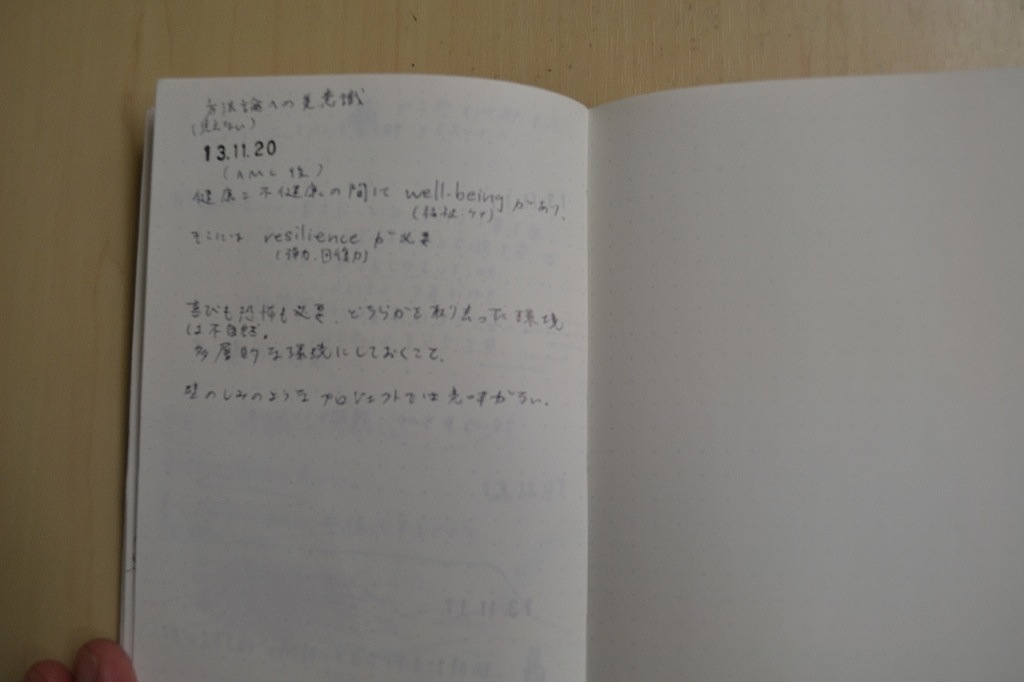 方法論への見意識
(見えない)
13.11.20
(AMC 後)
健康と不健康の間に well-being があり、
(福祉・ケア)
そこには resilience が必要
(弾力、回復力)
喜びも恐怖も必要、どちらかを取り去った環境
は不自然。
多層的な環境にしておくこと。
のしみのような プロジェクトでは